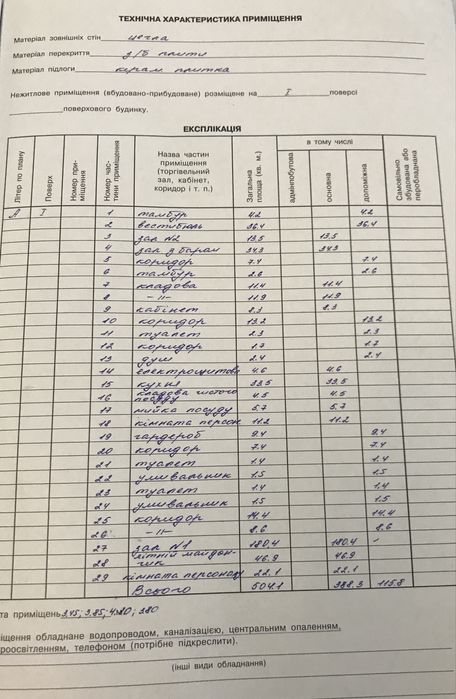 ТЕХНІЧНА ХАРАКТЕРИСТИКА ПРИМІЩЕННЯ
Матеріал зовнішніх стін цегла
Матеріал перекриття з/б плити
Матеріал підлоги керам. плитка
Нежитлове приміщення (вбудовано-прибудоване) розміщене на I поверсі
поверхового будинку.
ЕКСПЛІКАЦІЯ
Літер по плану Поверх Номер при-міщення Номер час-тини приміщення Назва частин приміщення (торгівельний зал, кабінет, коридор і т. п.) Загальна площа (кв. м.) в тому числі адмінпобутова основна допоміжна Самовільно збудована або переобладнана
А I 1 тамбур 4.2 4.2
2 вестибюль 36.4 36.4
3 зал №2 13.5 13.5
4 зал з баром 34.3 34.3
5 коридор 7.4 7.4
6 тамбур 2.6 2.6
7 кладова 11.4 11.4
8 -//- 11.9 11.9
9 кабінет 8.3 8.3
10 коридор 13.2 13.2
11 туалет 2.3 2.3
12 коридор 1.7 1.7
13 душ 2.4 2.4
14 електрощитова 4.6 4.6
15 кухня 33.5 33.5
16 кладова чистого посуду 4.5 4.5
17 мийка посуду 5.7 5.7
18 кімната персон 11.2 11.2
19 гардероб 9.4 9.4
20 коридор 7.4 7.4
21 туалет 1.4 1.4
22 умивальник 1.5 1.5
23 туалет 1.4 1.4
24 умивальник 1.5 1.5
25 коридор 14.4 14.4
26 -//- 8.6 8.6
27 зал №1 180.4 180.4
28 літній майдан-чик 46.9 46.9
29 кімната персоналу 22.1 22.1
Всього 504.1 388.3 115.8
та приміщень 3.45; 3.85; 4.80; 3.80
іщення обладнане водопроводом, каналізацією, центральним опаленням,
роосвітленням, телефоном (потрібне підкреслити).
(інші види обладнання)